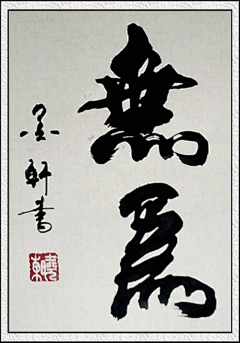 無爲
墨軒書